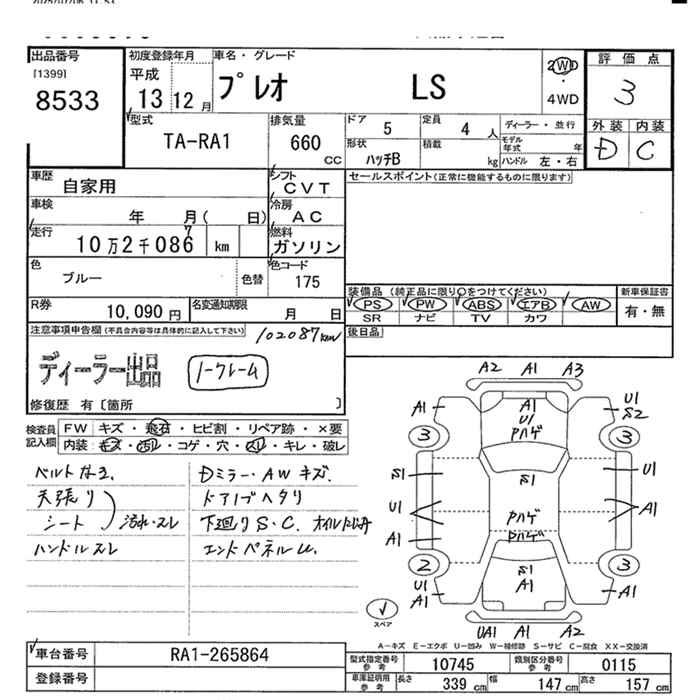 出品番号
[1399]
8533
初度登録年月
平成
13 12月
車名・グレード
プレオ LS
2WD
・
4WD
評価点
3
外装 内装
D C
型式
TA-RA1
排気量
660
CC
ドア
5
定員
4 人
ディーラー・並行
モデル年式 年
形状
ハッチB
積載
kg
ハンドル 左・右
車歴
自家用
シフト
CVT
セールスポイント(正常に機能するものに限ります)
車検
年 月( 日)
冷房
AC
走行
10万2千086 km
7
燃料
ガソリン
色
ブルー
色替
色コード
175
装備品(純正品に限り○をつけてください)
新車保証書
PS PW ABS エアB AW
有・無
SR ナビ TV カワ
R券
10,090 円
名変通知期限
月 日
後日品
注意事項申告欄(不具合内容等は具体的に記入して下さい)
102087km
ディーラー出品
ノークレーム
修復歴 有〔箇所 〕
検査員記入欄
FW キズ・飛石・ヒビ割・リペア跡・×要
内装:キズ・汚レ・コゲ・穴・スレ・キレ・破レ
天張り
シート
汚れ・スレ
ハンドルスレ
Dミラー・AWキズ.
下廻りS・C.
A2 A1 A3
A1
A1
U1
Pハゲ
U1
S2
3 3
S1
S1
U1
U1
A1
A1
Pハゲ
Pハゲ
2 3
S1
A1
U1
A1
A1
スペア
UA1 A1 A2
A-キズ E-エクボ U-凹み W-補修跡 S-サビ C-腐食 XX-交換済
車台番号
RA1-265864
登録番号
型式指定番号
参考
10745
類別区分番号
参考
0115
車庫証明用
参考
長さ
339 cm
幅
147 cm
高さ
157 cm